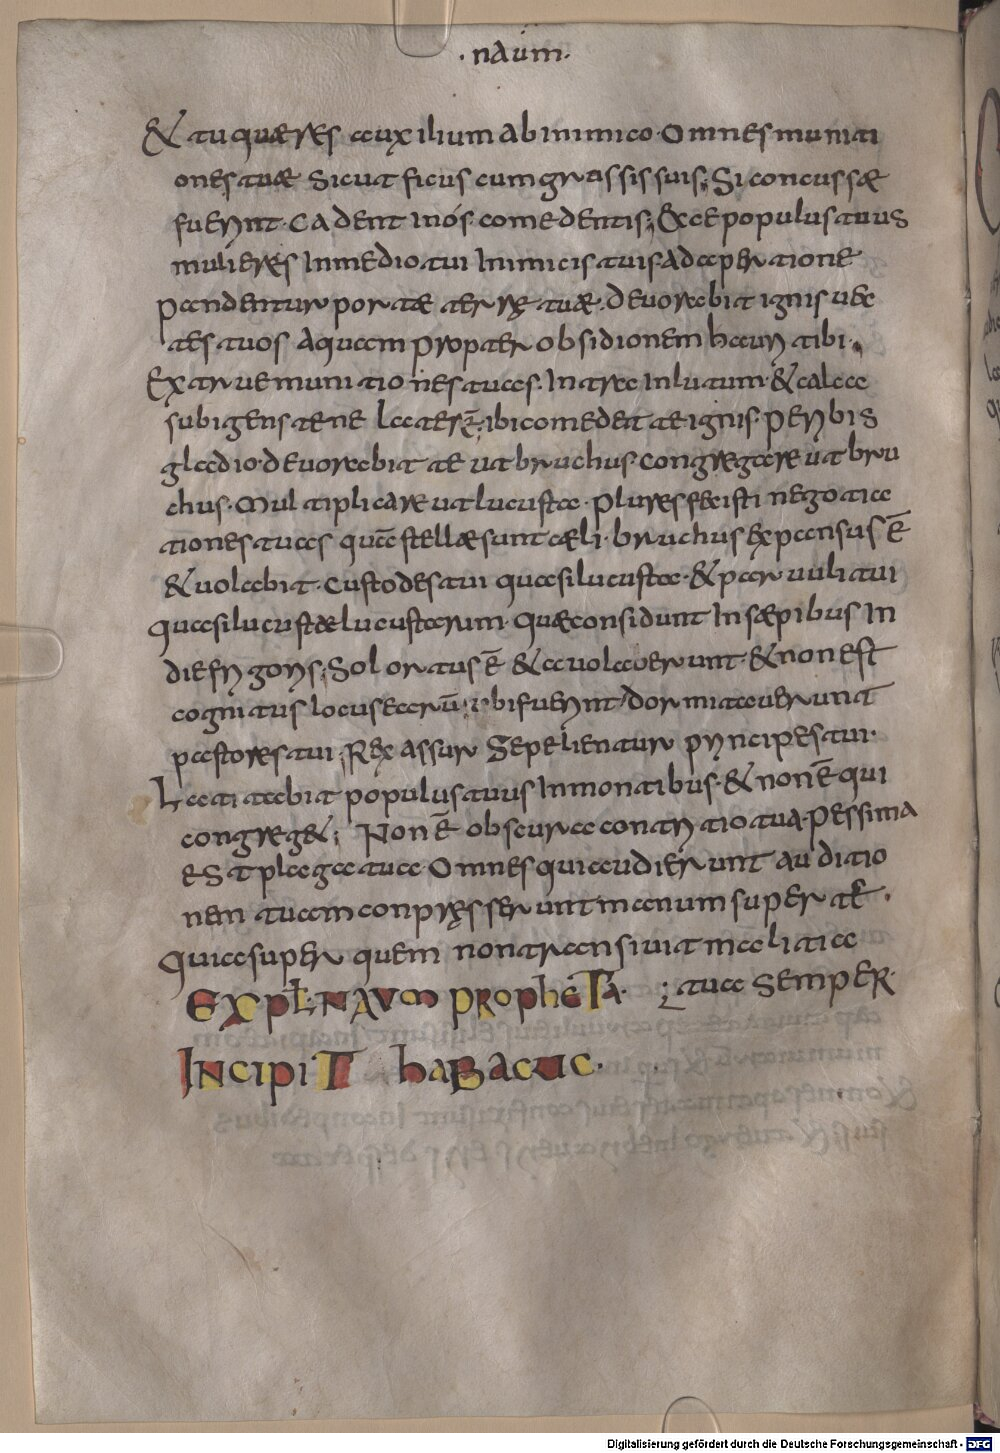 ·naum·
& tu quæres auxilium ab inimico· Omnes muniti
ones tuæ sicut ficus cum grassis suis; Si concussæ
fuerint· Cadent in os comedentis; Ecce populus tuus
mulieres In medio tui Inimicis tuis adapertione
pandentur portæ terrę tuæ· deuorabit ignis uec
tes tuos Aquam propter obsidionem hauri tibi·
Extrue munitiones tuas· Intra In lutum· & calca
subigens tene laterē; ibi comedet te ignis· peribis
gladio· deuorabit te ut bruchus· congregare ut bru
chus· Multiplicare ut lucusta· plures fecisti negotia
tiones tuas quā stellæ sunt cæli· bruchus expansus ē
& uolabit· Custodes tui quasi lucustae· & paruuli tui
quasi lucustæ lucustarum· quæ considunt In sæpibus In
die frigoris; Sol ortus ē & auolauerunt· & non est
cognitus locus earū; ubi fuerint / dormitauerunt
pastores tui; Rex assur Sepelientur principes tui·
Latitabit populus tuus In montibus· & non ē qui
congreg&; Non ē obscura contritio tua· pessima
est plaga tua· Omnes qui audierunt auditio
nem tuam conpręsserunt manum super te·
Quia super quem non transiuit malitia
tua semper·
Expl· naum propheta·
Incipit habacuc·
Digitalisierung gefördert durch die Deutsche Forschungsgemeinschaft - DFG